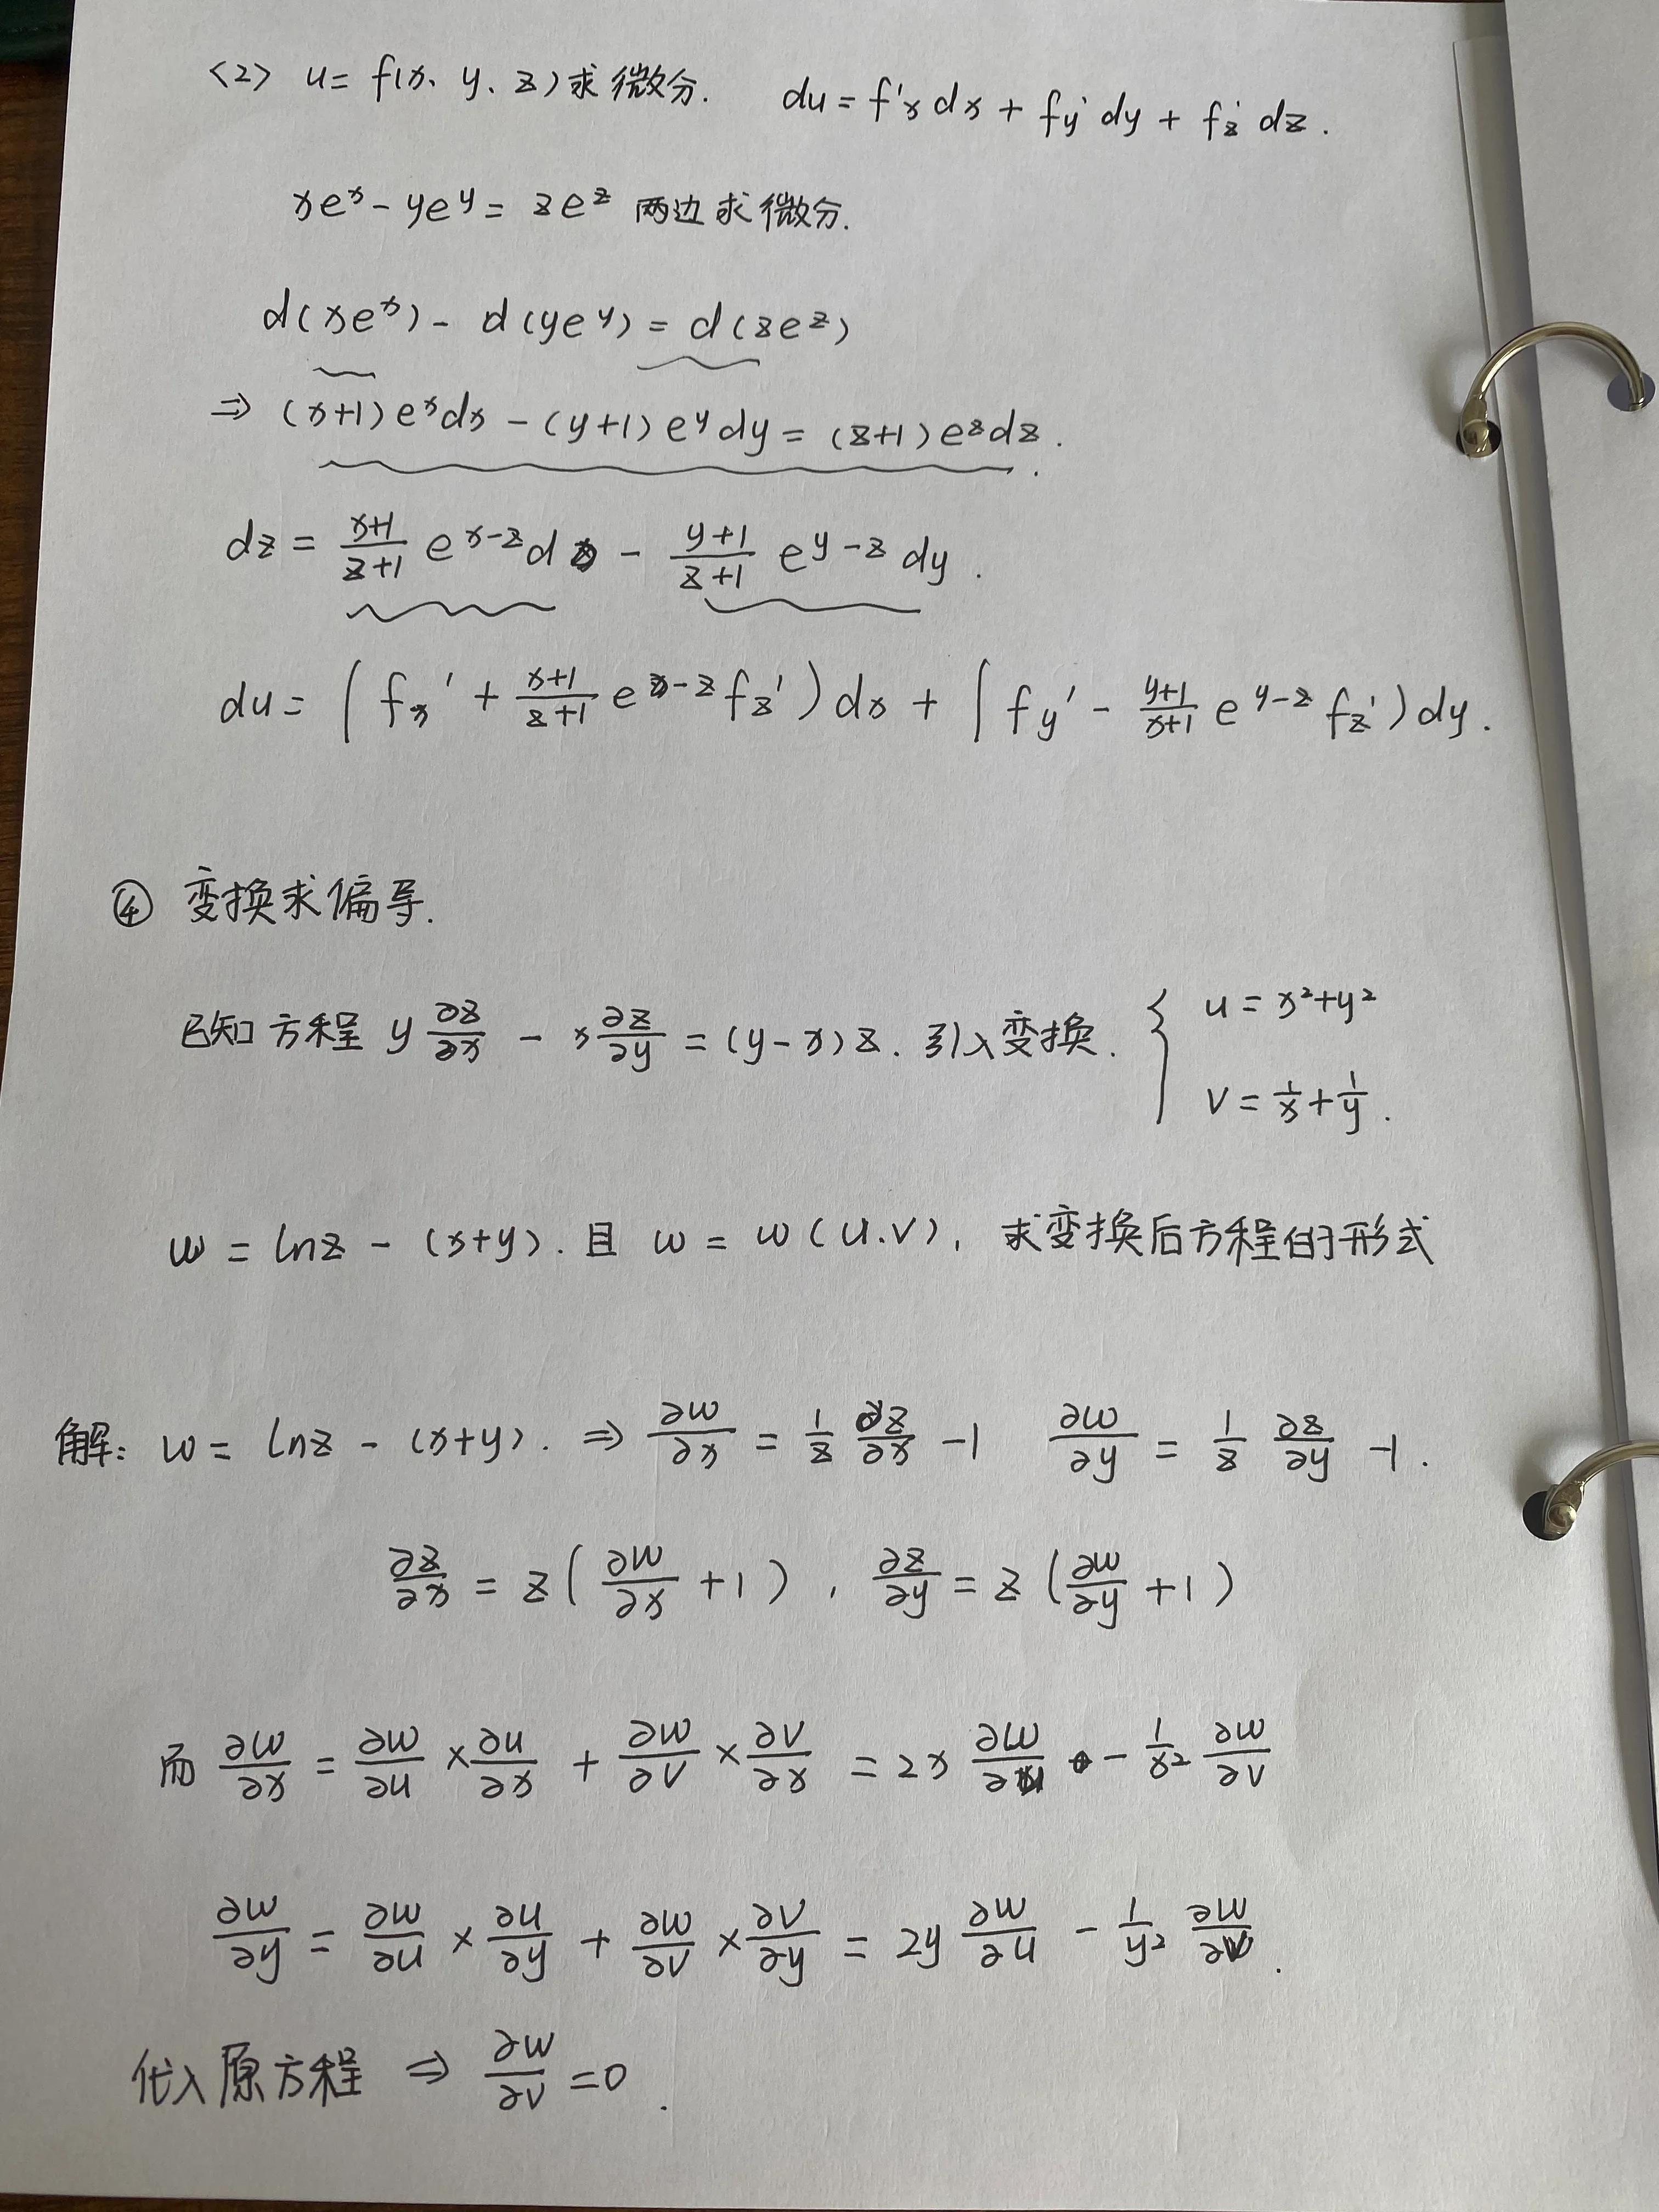 <2> u= f(x、y、z)求微分. du = f'x dx + fy' dy + fz' dz .
xe^x - ye^y = ze^z 两边求微分.
d(xe^x) - d(ye^y) = d(ze^z)
⇒ (x+1)e^x dx - (y+1)e^y dy = (z+1)e^z dz .
dz = \frac{x+1}{z+1} e^{x-z} dx - \frac{y+1}{z+1} e^{y-z} dy .
du = ( fx' + \frac{x+1}{z+1} e^{x-z} fz' ) dx + ( fy' - \frac{y+1}{x+1} e^{y-z} fz' ) dy .
④ 变换求偏导.
已知方程 y \frac{∂z}{∂x} - x \frac{∂z}{∂y} = (y-x)z . 引入变换. { u = x²+y²
v = \frac{1}{x} + \frac{1}{y} .
w = lnz - (x+y) . 且 w = w(u.v), 求变换后方程的形式
解: w = lnz - (x+y) . ⇒ \frac{∂w}{∂x} = \frac{1}{z} \frac{∂z}{∂x} -1 \frac{∂w}{∂y} = \frac{1}{z} \frac{∂z}{∂y} -1 .
\frac{∂z}{∂x} = z ( \frac{∂w}{∂x} +1 ) , \frac{∂z}{∂y} = z ( \frac{∂w}{∂y} +1 )
而 \frac{∂w}{∂x} = \frac{∂w}{∂u} × \frac{∂u}{∂x} + \frac{∂w}{∂v} × \frac{∂v}{∂x} = 2x \frac{∂w}{∂u} - \frac{1}{x²} \frac{∂w}{∂v}
\frac{∂w}{∂y} = \frac{∂w}{∂u} × \frac{∂u}{∂y} + \frac{∂w}{∂v} × \frac{∂v}{∂y} = 2y \frac{∂w}{∂u} - \frac{1}{y²} \frac{∂w}{∂v} .
代入原方程 ⇒ \frac{∂w}{∂v} = 0 .